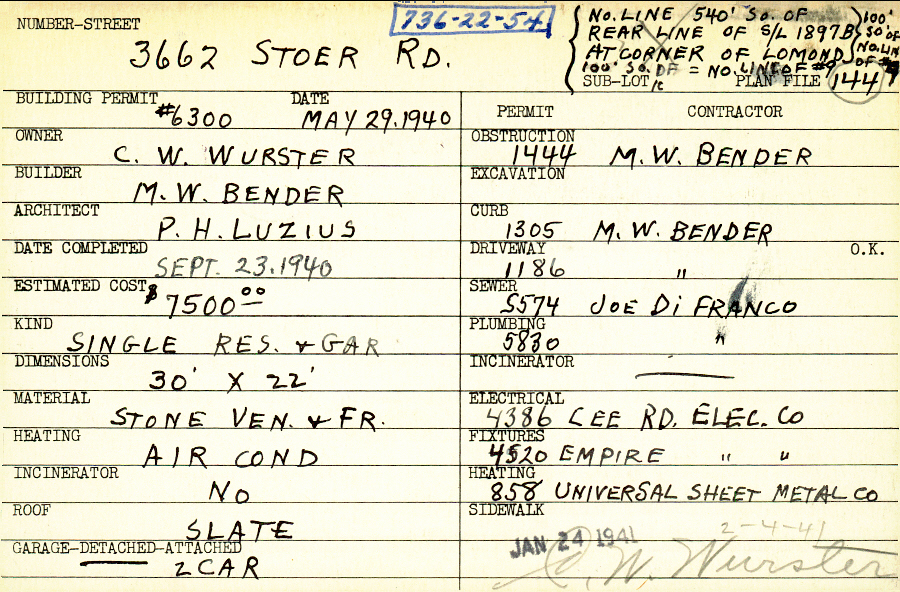 NUMBER-STREET
736-22-54
3662 STOER RD.
NO. LINE 540' SO. OF
REAR LINE OF S/L 1897B
AT CORNER OF LOMOND
100' SO. OF = NO. LINE OF #9
100'
SO. OF
NO. LIN
OF #9
SUB-LOT
PLAN FILE 144
BUILDING PERMIT #6300 DATE MAY 29.1940
OWNER C. W. WURSTER
BUILDER M. W. BENDER
ARCHITECT P. H. LUZIUS
DATE COMPLETED SEPT. 23.1940
ESTIMATED COST $7500 00
KIND SINGLE RES. & GAR
DIMENSIONS 30' X 22'
MATERIAL STONE VEN. & FR.
HEATING AIR COND
INCINERATOR NO
ROOF SLATE
GARAGE-DETACHED-ATTACHED 2 CAR
PERMIT CONTRACTOR
OBSTRUCTION 1444 M. W. BENDER
EXCAVATION
CURB 1305 M. W. BENDER
DRIVEWAY 1186 " O.K.
SEWER 5574 JOE DI FRANCO
PLUMBING 5830 "
INCINERATOR
ELECTRICAL 4386 LEE RD. ELEC. CO
FIXTURES 4520 EMPIRE " "
HEATING 858 UNIVERSAL SHEET METAL CO
SIDEWALK
JAN 24 1941 2-4-41
C. W. Wurster